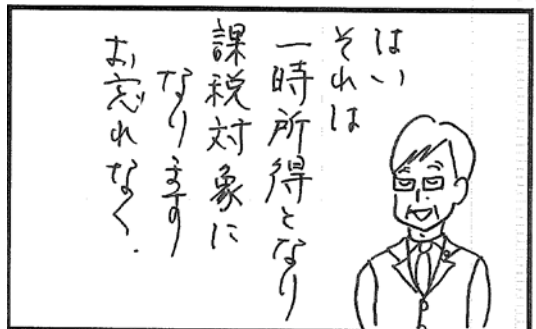 はい
それは
一時所得となり
課税対象に
なります
お忘れなく.